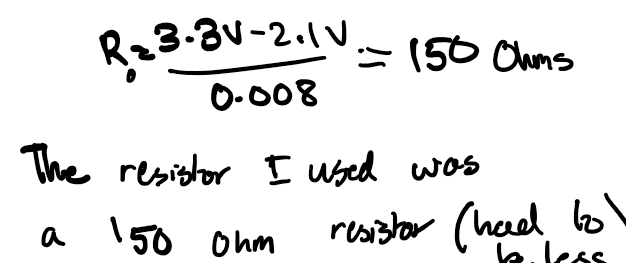 R = 3.3V-2.1V = 150 Ohms
0.008
The resistor I used was
a 150 ohm resistor (had to
be less